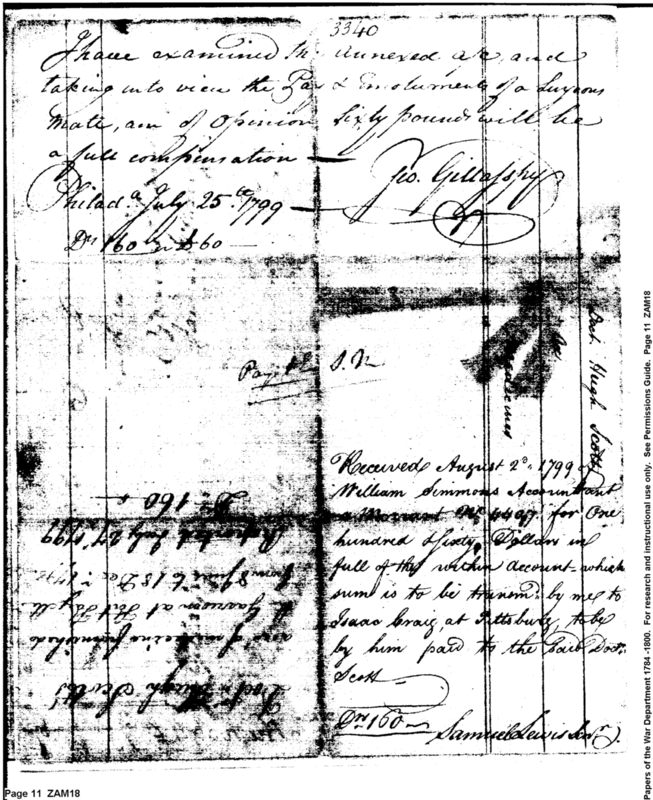 3340
I have examined the annexed a/c, and
taking into view the Pay & Emoluments of a Surgeons
Mate, am of Opinion Sixty pounds will be
a full compensation —
Geo. Gillasspy
Philad.a July 25.th 1799 —
Drs 160 £60 —
Pay
S. N
Doct. Hugh Scott
Medicines
Received August 2d. 1799, of
William Simmons Accountant
a Warrant No 4497. for One
hundred & sixty Dollars in
full of the within account which
sum is to be transmd. by me to
Isaac Craig, at Pittsburg, to be
by him paid to the said Doct.
Scott
Drs 160 —
Samuel Lewis Senr.
Doctr. Hugh Scott's
acct. of medicine furnished
the Garrison at Fort Fayette
from June to 18 Dec.
Reported July 27 1799
Drs 160
Page 11 ZAM18
Papers of the War Department 1784 -1800. For research and instructional use only. See Permissions Guide. Page 11 ZAM18